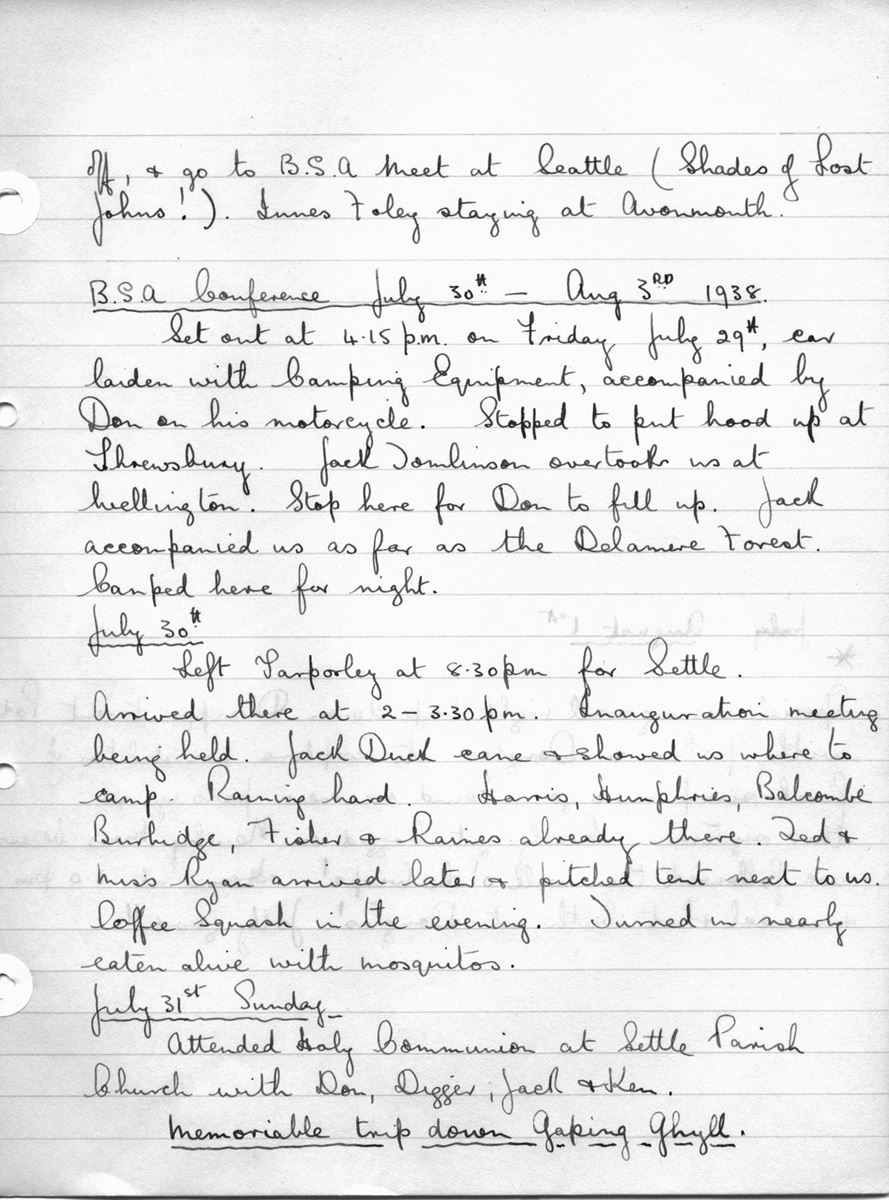 off, & go to B.S.A Meet at Seattle (Shades of Lost
Johns!). Innes Foley staying at Avonmouth.
B.S.A Conference July 30th – Aug 3RD 1938.
Set out at 4.15 p.m. on Friday July 29th, car
laiden with Camping Equipment, accompanied by
Don on his motorcycle. Stopped to put hood up at
Shrewsbury. Jack Tomlinson overtook us at
Wellington. Stop here for Don to fill up. Jack
accompanied us as far as the Delamere Forest.
Camped here for night.
July 30th
Left Tarporley at 8.30pm for Settle.
Arrived there at 2 – 3.30pm. Inauguration meeting
being held. Jack Duck came & showed us where to
camp. Raining hard. Harris, Humphries, Balcombe
Burhidge, Fisher & Raines already there. Ted &
Miss Ryan arrived later & pitched tent next to us.
Coffee Squash in the evening. Turned in nearly
eaten alive with mosquitos.
July 31st Sunday
Attended Holy Communion at Settle Parish
Church with Don, Digger, Jack & Ken.
Memoriable trip down Gaping Ghyll.